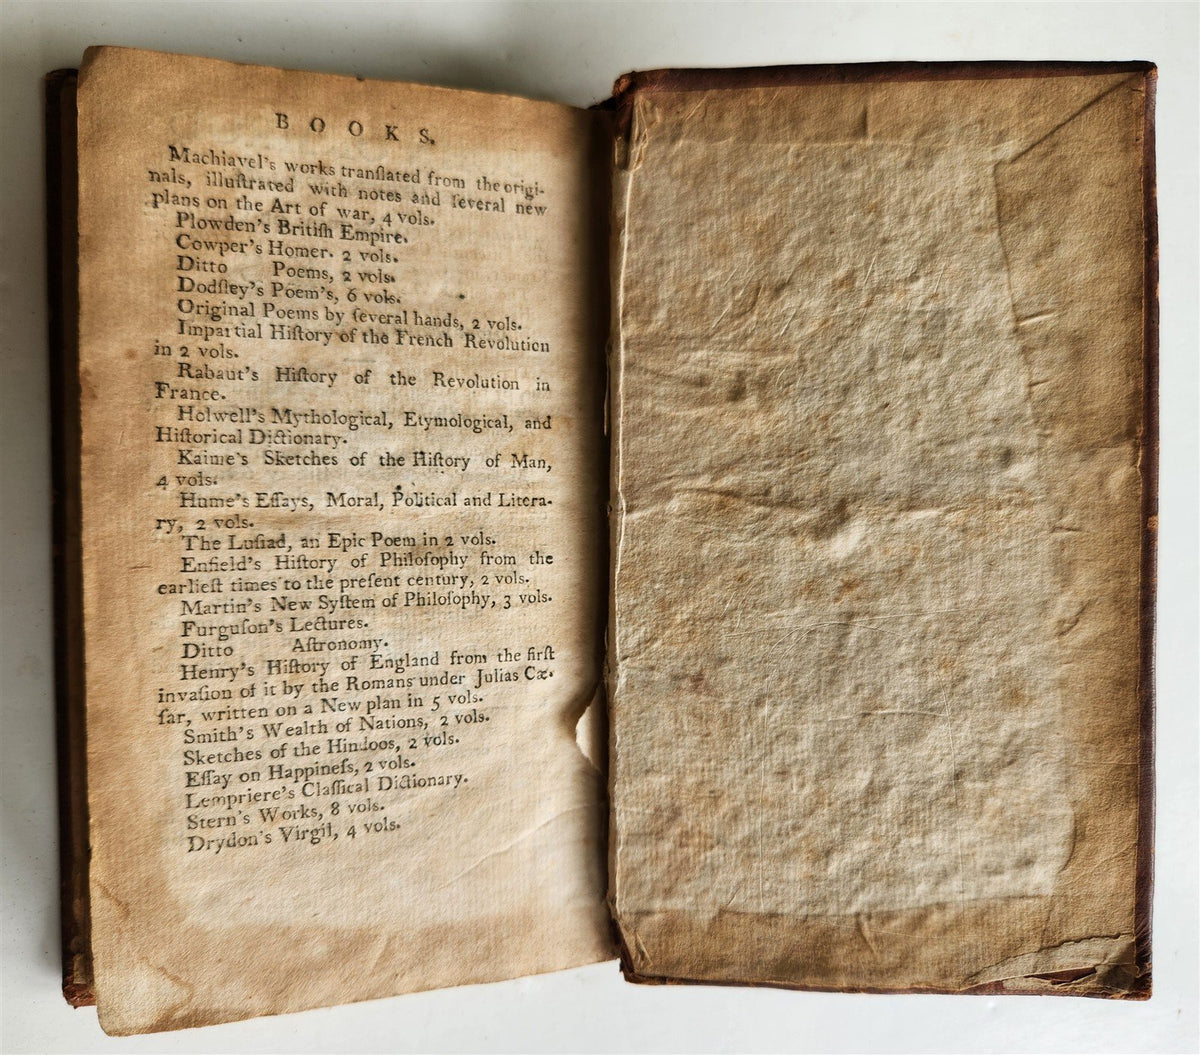 BOOKS.
Machiavel's works tranſlated from the origi-
nals, illuſtrated with notes and ſeveral new
plans on the Art of war, 4 vols.
Plowden's Britiſh Empire.
Cowper's Homer. 2 vols.
Ditto Poems, 2 vols.
Dodſley's Poem's, 6 vols.
Original Poems by ſeveral hands, 2 vols.
Impartial Hiſtory of the French Revolution
in 2 vols.
Rabaut's Hiſtory of the Revolution in
France.
Holwell's Mythological, Etymological, and
Hiſtorical Dictionary.
Kaime's Sketches of the Hiſtory of Man,
4 vols.
Hume's Eſſays, Moral, Political and Litera-
ry, 2 vols.
The Luſiad, an Epic Poem in 2 vols.
Enfield's Hiſtory of Philoſophy from the
earlieſt times to the preſent century, 2 vols.
Martin's New Syſtem of Philoſophy, 3 vols.
Furguſon's Lectures.
Ditto Aſtronomy.
Henry's Hiſtory of England from the firſt
invaſion of it by the Romans under Julias Cæ-
ſar, written on a New plan in 5 vols.
Smith's Wealth of Nations, 2 vols.
Sketches of the Hindoos, 2 vols.
Eſſay on Happineſs, 2 vols.
Lempriere's Claſſical Dictionary.
Stern's Works, 8 vols.
Drydon's Virgil, 4 vols.